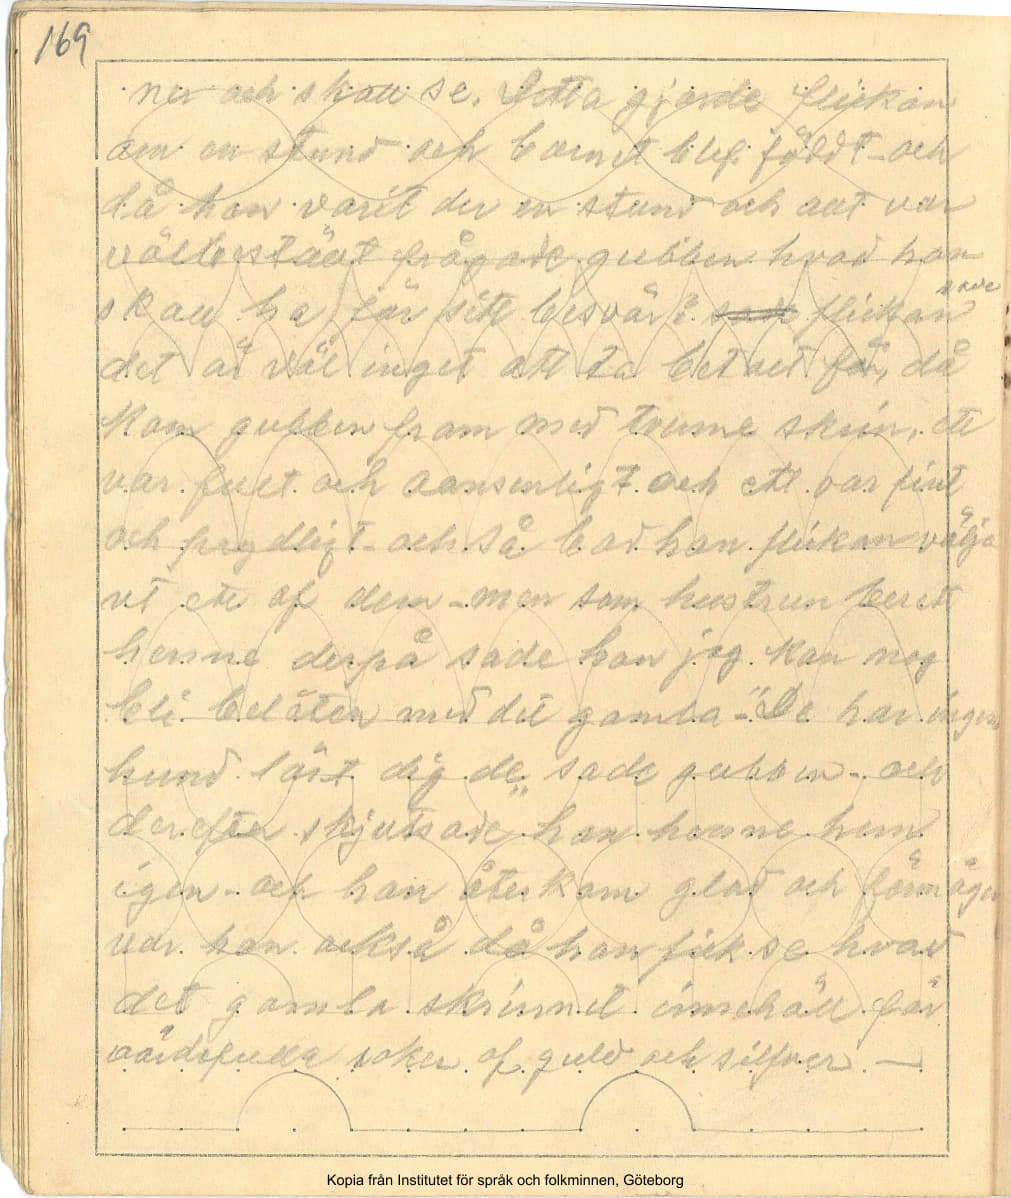 169
ner och skall se. Detta gjorde flickan
om en stund och barnet blef födt - och
då hon varit der en stund och allt var
välbestält frågade gubben hvad hon
skall ha för sitt besvär? sade flickan
det är väl inget att ta betalt för, då
kom gubben fram med tvenne skrin, ett
var fult och oansenligt och ett var fint
och prydligt - och så bad han flickan välja
ut ett af dem - men som hustrun beret
henne derpå sade hon jag kan nog
bli belåten med det gamla - "De har ingen
hund lärt dig de" sade gubben - och
derefter skjutsade han henne hem
igen - och hon återkom glad och förmögen
var hon också då hon fick se hvad
det gamla skrinnet innehöll för
värdefulla saker af guld och silfver —
Kopia från Institutet för språk och folkminnen, Göteborg